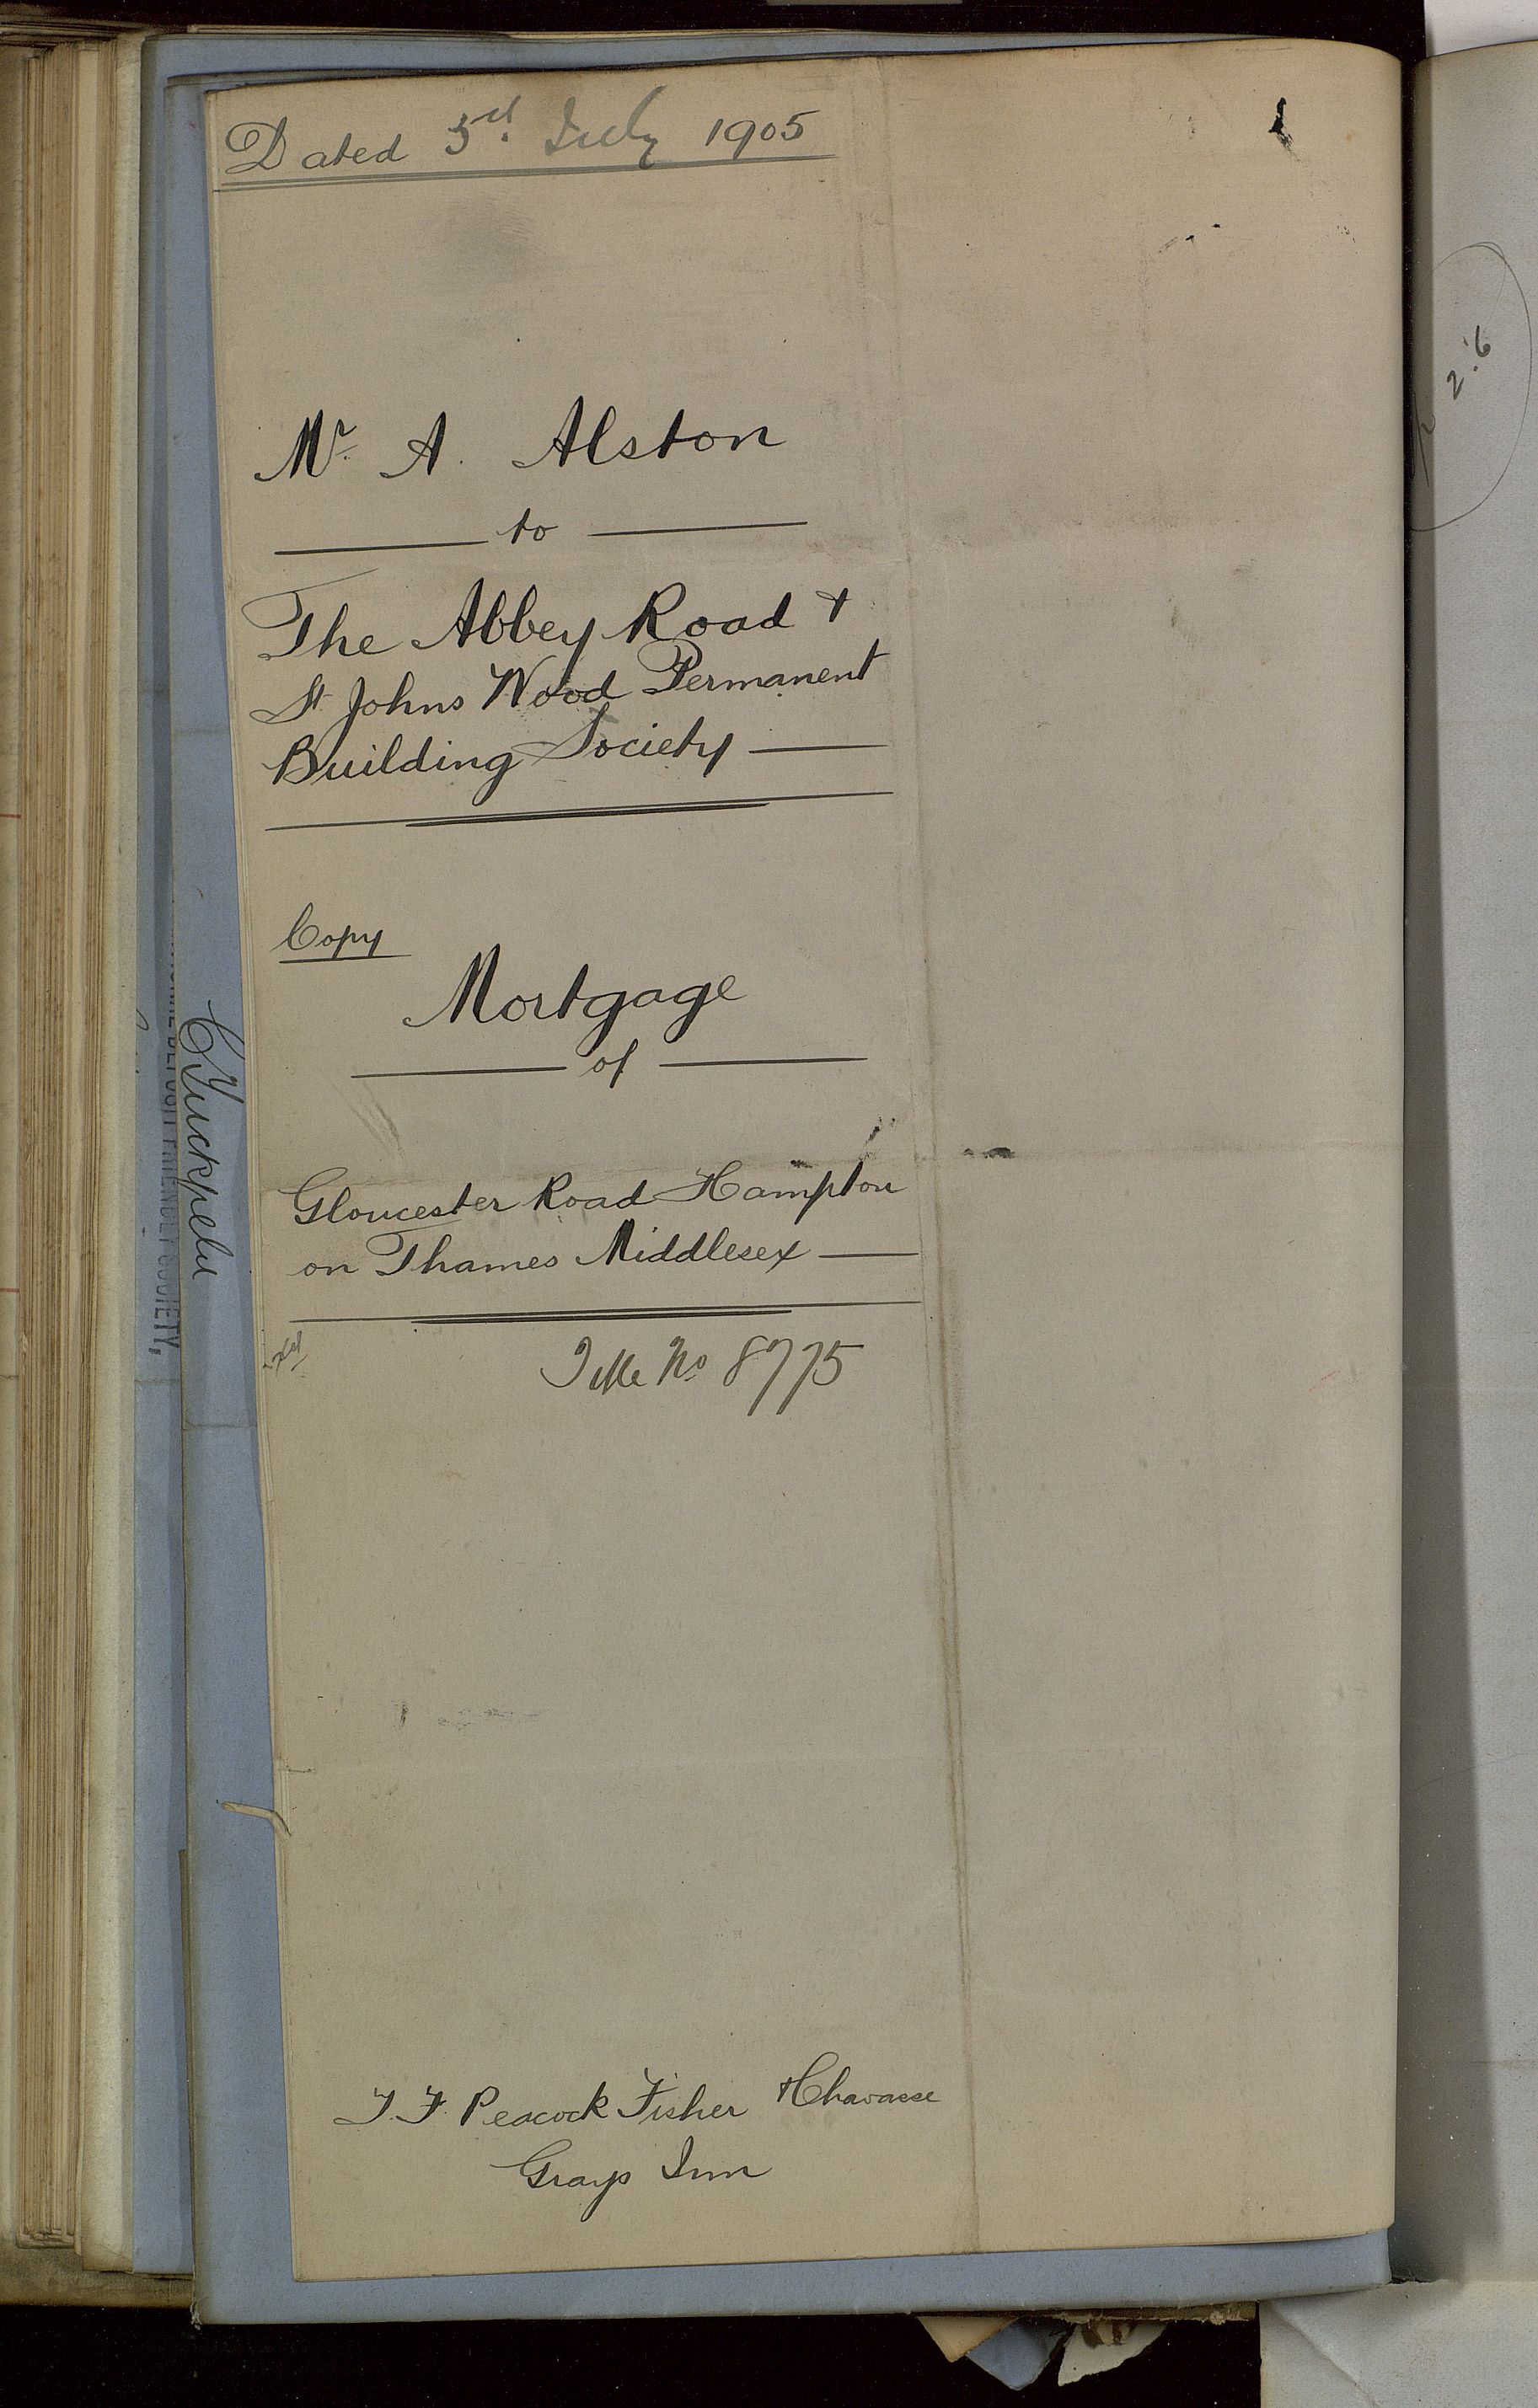 Dated 3rd July 1905
Mr. A. Alston
to
The Abbey Road &
St Johns Wood Permanent
Building Society
Copy
Mortgage
of
Gloucester Road Hampton
on Thames Middlesex
Title No 8775
T. F. Peacock Fisher & Chavasse
Grays Inn
2.6
SOCIETY,